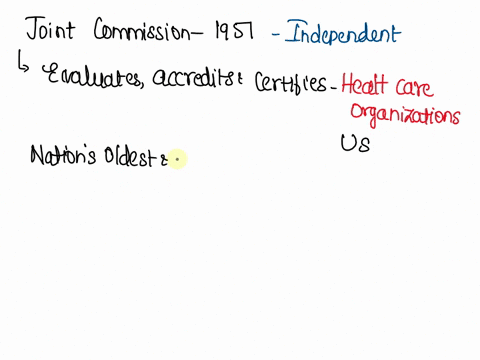 Joint Commission - 1951 - Independent
↳ Evaluates, accredits & Certifies - Healt care
Organizations
US
Nation's Oldest &